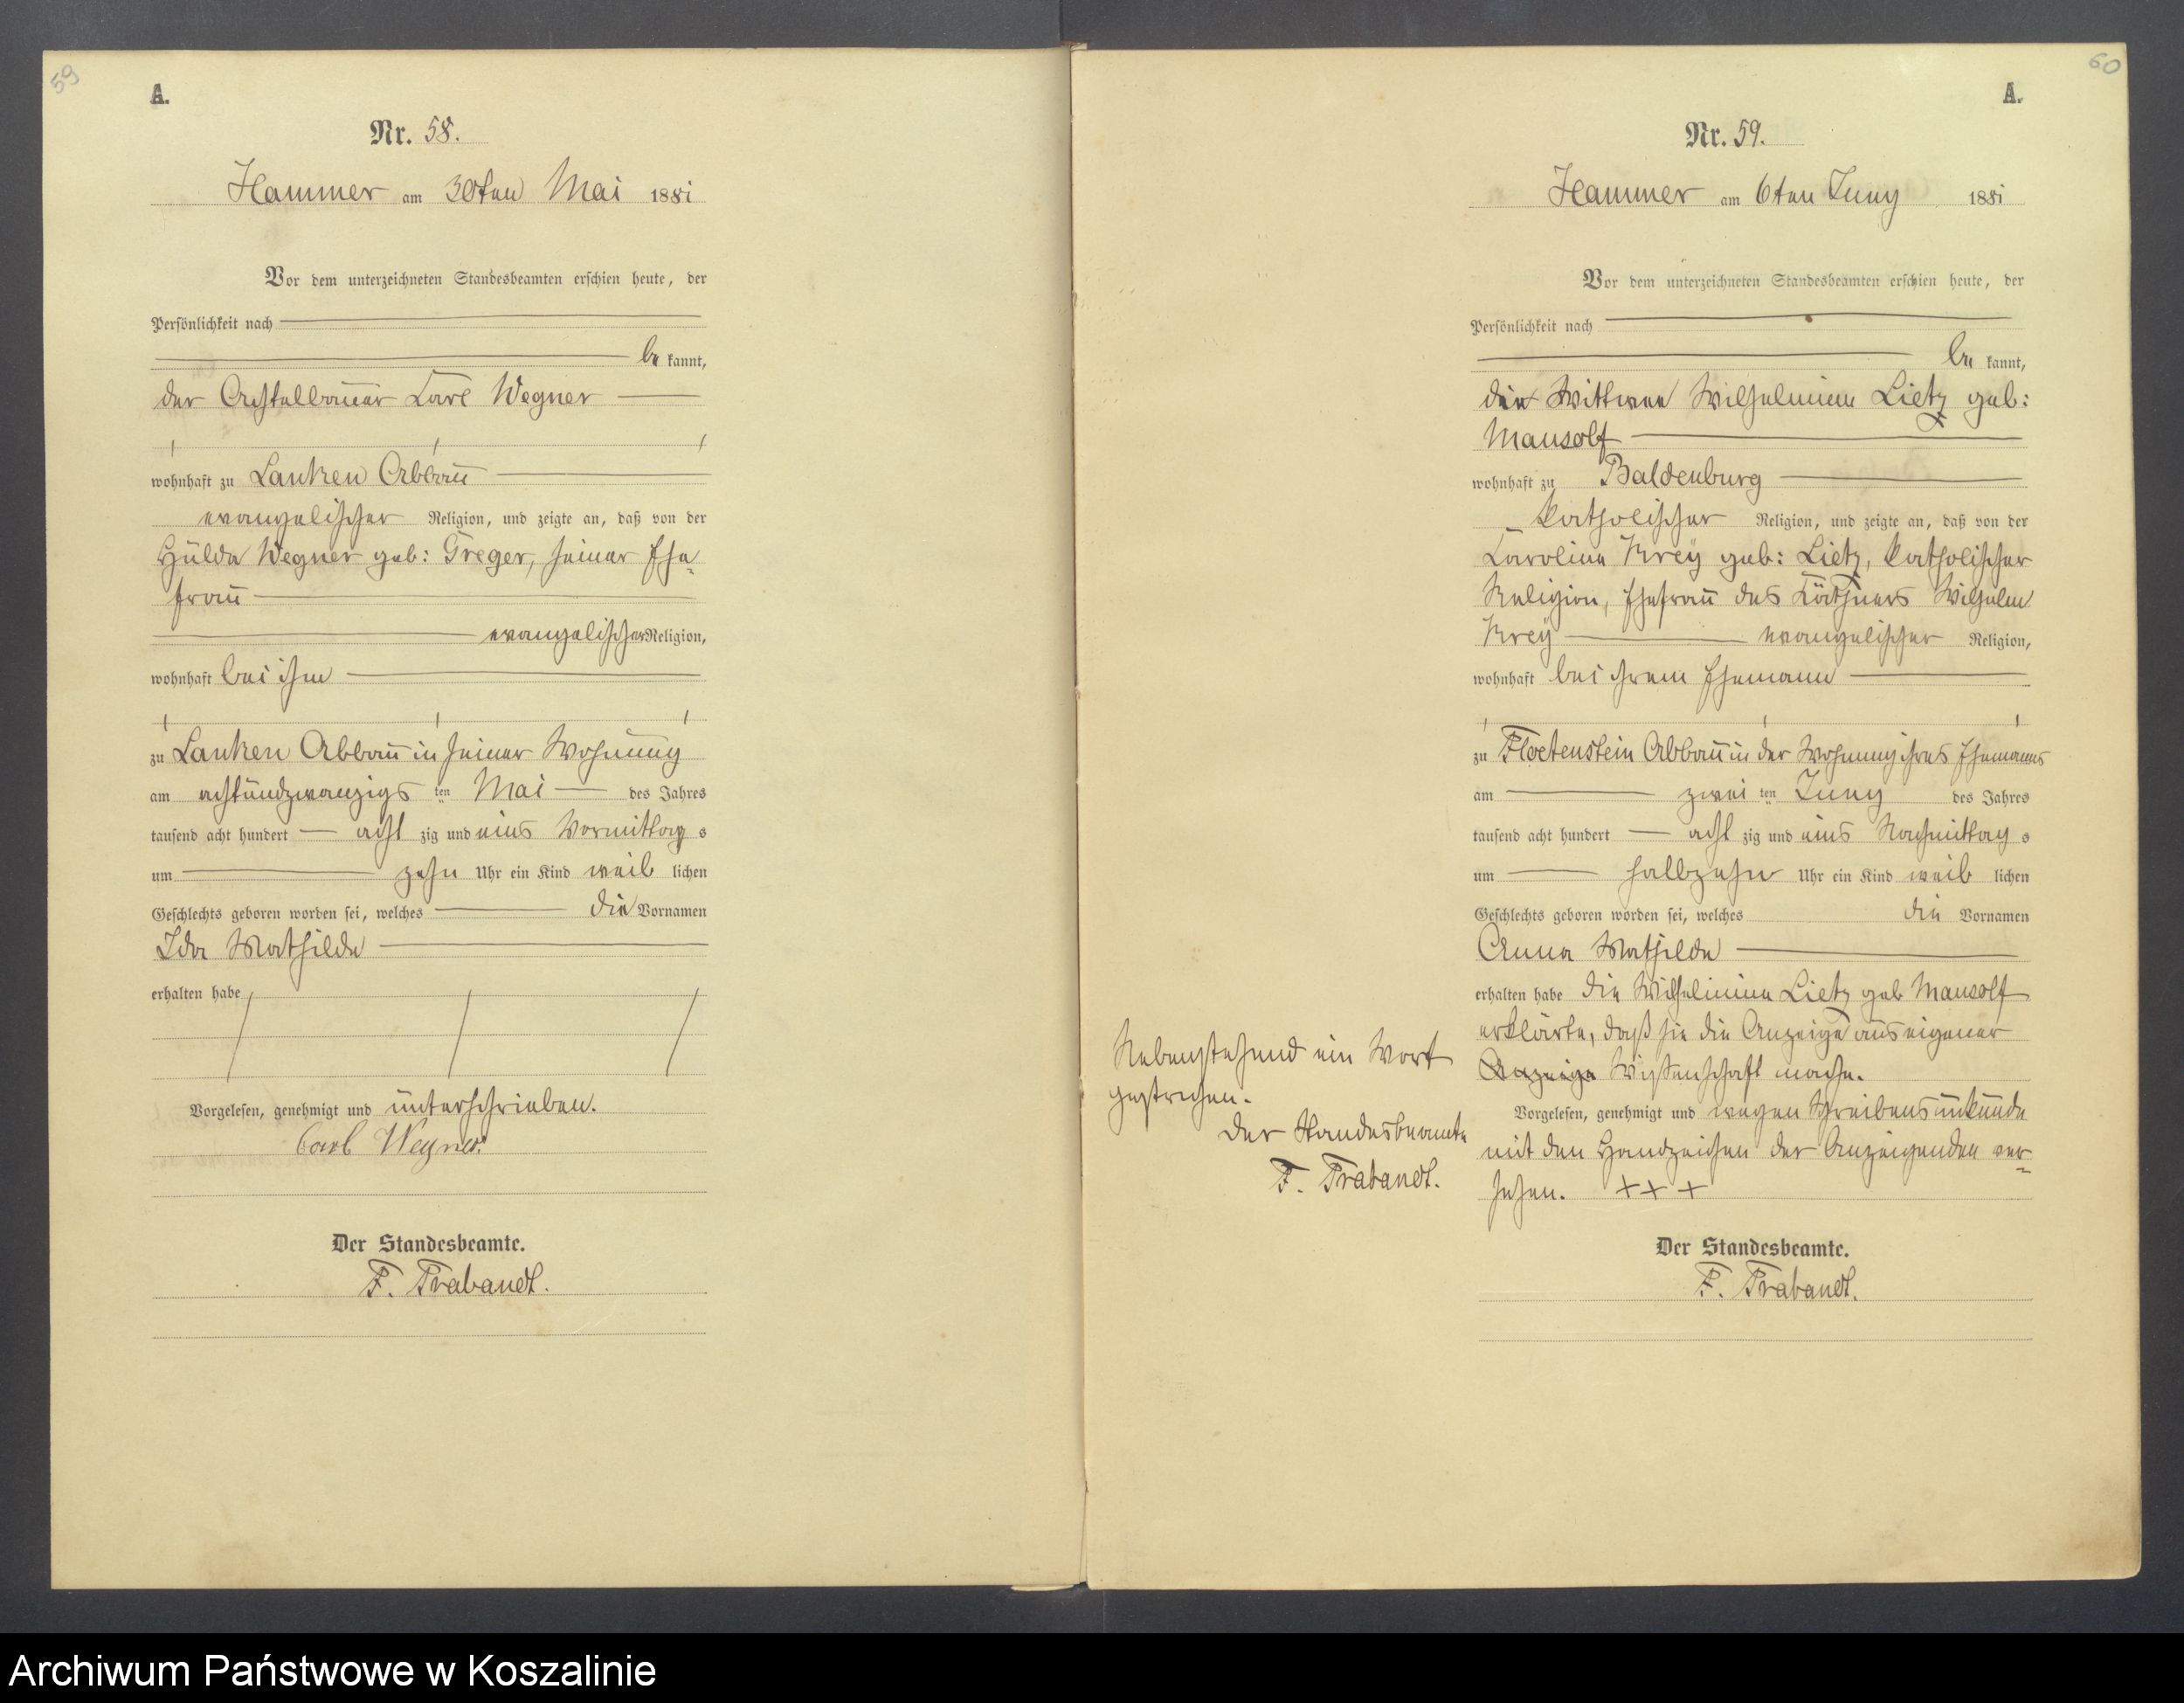 59
A.
Nr. 58.
Hammer am 30ten Mai 1881
Vor dem unterzeichneten Standesbeamten erschien heute, der
Persönlichkeit nach
be kannt,
der Carl Wegner
wohnhaft zu Lanken Abbau
evangelischer Religion, und zeigte an, daß von der
Hulda Wegner geb: Greger, seiner Ehe-
frau
evangelischer Religion,
wohnhaft bei ihm
zu Lanken Abbau in seiner Wohnung
am achtundzwanzigs ten Mai des Jahres
tausend acht hundert acht zig und eins Vormittag s
um zehn Uhr ein Kind weib lichen
Geschlechts geboren worden sei, welches die Vornamen
Ida Mathilde
erhalten habe
Vorgelesen, genehmigt und unterschrieben.
Carl Wegner.
Der Standesbeamte.
F. Trabandt.
60
A.
Nr. 59.
Hammer am 6ten Juny 1881
Vor dem unterzeichneten Standesbeamten erschien heute, der
Persönlichkeit nach
be kannt,
die Wittwee Wilhelmine Lietz geb:
Mansolf
wohnhaft zu Baldenburg
katholischer Religion, und zeigte an, daß von der
Caroline Krey geb: Lietz, katholischer
Religion, Ehefrau des Käthners Wilhelm
Krey evangelischer Religion,
wohnhaft bei ihrem Ehemann
zu Floetenstein Abbau in der Wohnung ihres Ehemanns
am zwei ten Juny des Jahres
tausend acht hundert acht zig und eins Nachmittag s
um halbzehn Uhr ein Kind weib lichen
Geschlechts geboren worden sei, welches die Vornamen
Anna Mathilde
erhalten habe die Wilhelmine Lietz geb Mansolf
erklärte, daß sie die Anzeige aus eigener
Anzeige Wissenschaft mache.
Vorgelesen, genehmigt und wegen Schreibensunkunde
mit den Handzeichen der Anzeigenden ver-
sehen. + + +
Der Standesbeamte.
F. Trabandt.
Nebenstehend ein Wort
gestrichen.
Der Standesbeamte
F. Trabandt.
Archiwum Państwowe w Koszalinie